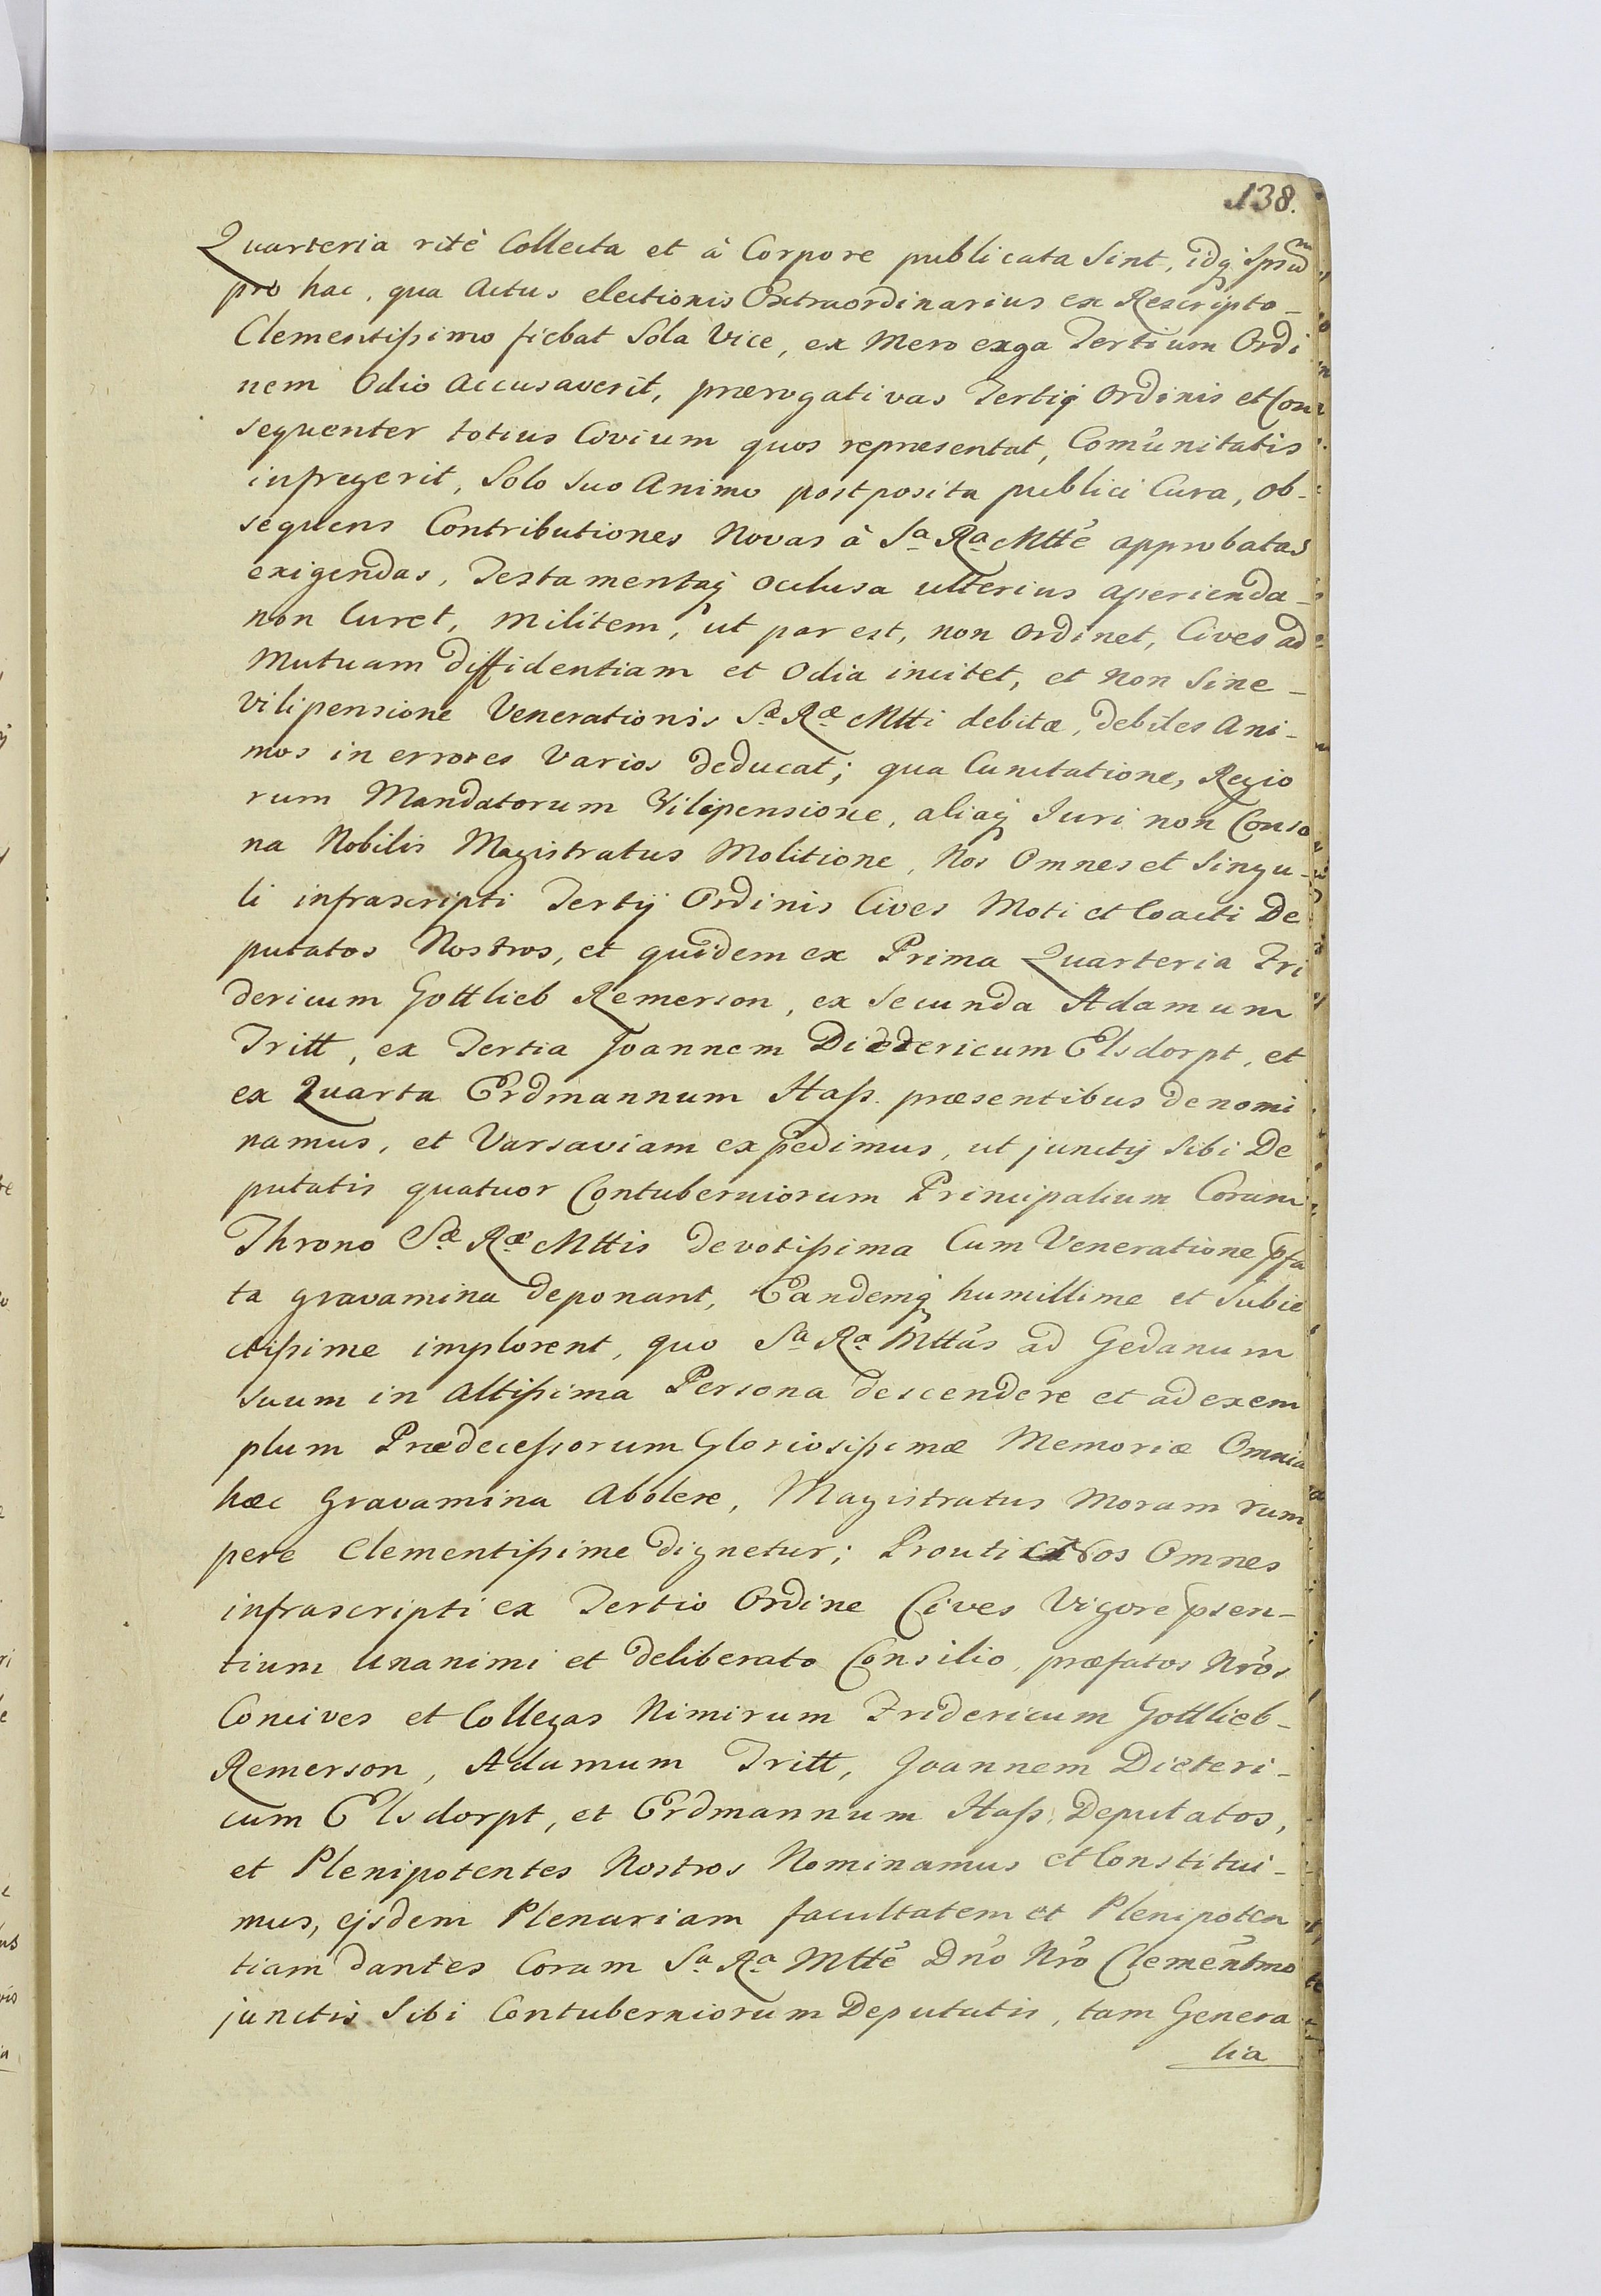 138.
Quarteria ritè Collecta et à Corpore publicata Sint, idq́
pro hac, qua Actus electionis Extraordinarius ex Rescripto_
Clementissimo fiebat Sola Vice, ex Mero erga Tertium Ordi
nem Odio Accusaverit, prærogativas Tertij Ordinis et Con
sequenter totius Civium quos repræsentat, Com̃unitatis
infregerit, Solo Suo Animo postposita publici Cura, ob-
sequens Contributiones Novas à Sa Ra Mtte approbatas
exigendas, Testamentaq́ occlusa ulterius aperienda_
non Curet, Militem, ut par est, non Ordinet, Cives ad
Mutuam diffidentiam et Odia incitet, et non Sine_
Vilipensione Venerationis Sæ Ræ Mtti debitæ, debiles Ani-
mos in errores Varios deducat; qua Cunctatione, Regio
rum Mandatorum Vilipensione, aliaq́ Iuri non Conso
na Nobilis Magistratus Molitione, Nos Omnes et Singu-
li infrascripti Tertij Ordinis Cives Moti et Coacti De
putatos Nostros, et quidem ex Prima Quarteria Fri
dericum Gottlieb Remerson, ex Secunda Adamum
Tritt, ex Tertia Joannem Diedericum Elsdorpt, et
ex Quarta Erdmannum Hass. præsentibus denomi
namus, et Varsaviam expedimus, ut junctij Sibi De
putatis quatuor Contuberniorum Principalium Coram
Throno Sæ Ræ Mttis devotissima Cum Veneratione p̃fa
ta gravamina deponant, Eandemq́ humillime et Subie
ctissime implorent, quo Sa Ra Mttas ad Gedanum
Suum in Altissima Persona descendere et ad exem
plum Prædecessorum Gloriosissimæ Memoriæ Omnia
hæc Gravamina Abolere, Magistratus Moram rum
pere Clementissime dignetur; Prouti et Nos Omnes
infrascripti ex Tertio Ordine Cives Vigore p̃sen-
tium Unanimi et deliberato Consilio, præfatos Nr̃os
Concives et Collegas Nimirum Fridericum Gottlieb_
Remerson, Adamum Tritt, Joannem Dieteri-
cum Elsdorpt, et Erdmannum Hass, Deputatos,
et Plenipotentes Nostros Nominamus et Constitui-
mus, ejsdem Plenariam facultatem et Plenipoten
tiam dantes Coram Sa Ra Mtte Dño Nr̃o Clemeñtmo
junctis Sibi Contuberniorum Deputatis, tam Genera
lia